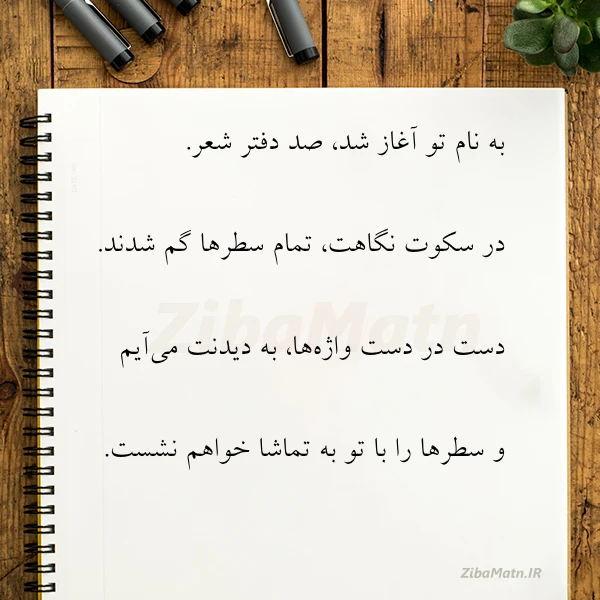 به نام تو آغاز شد، صد دفتر شعر.
در سکوت نگاهت، تمام سطرها گم شدند.
ZibaMatn
دست در دست واژه‌ها، به دیدنت می‌آیم
و سطرها را با تو به تماشا خواهم نشست.
ZibaMatn.IR